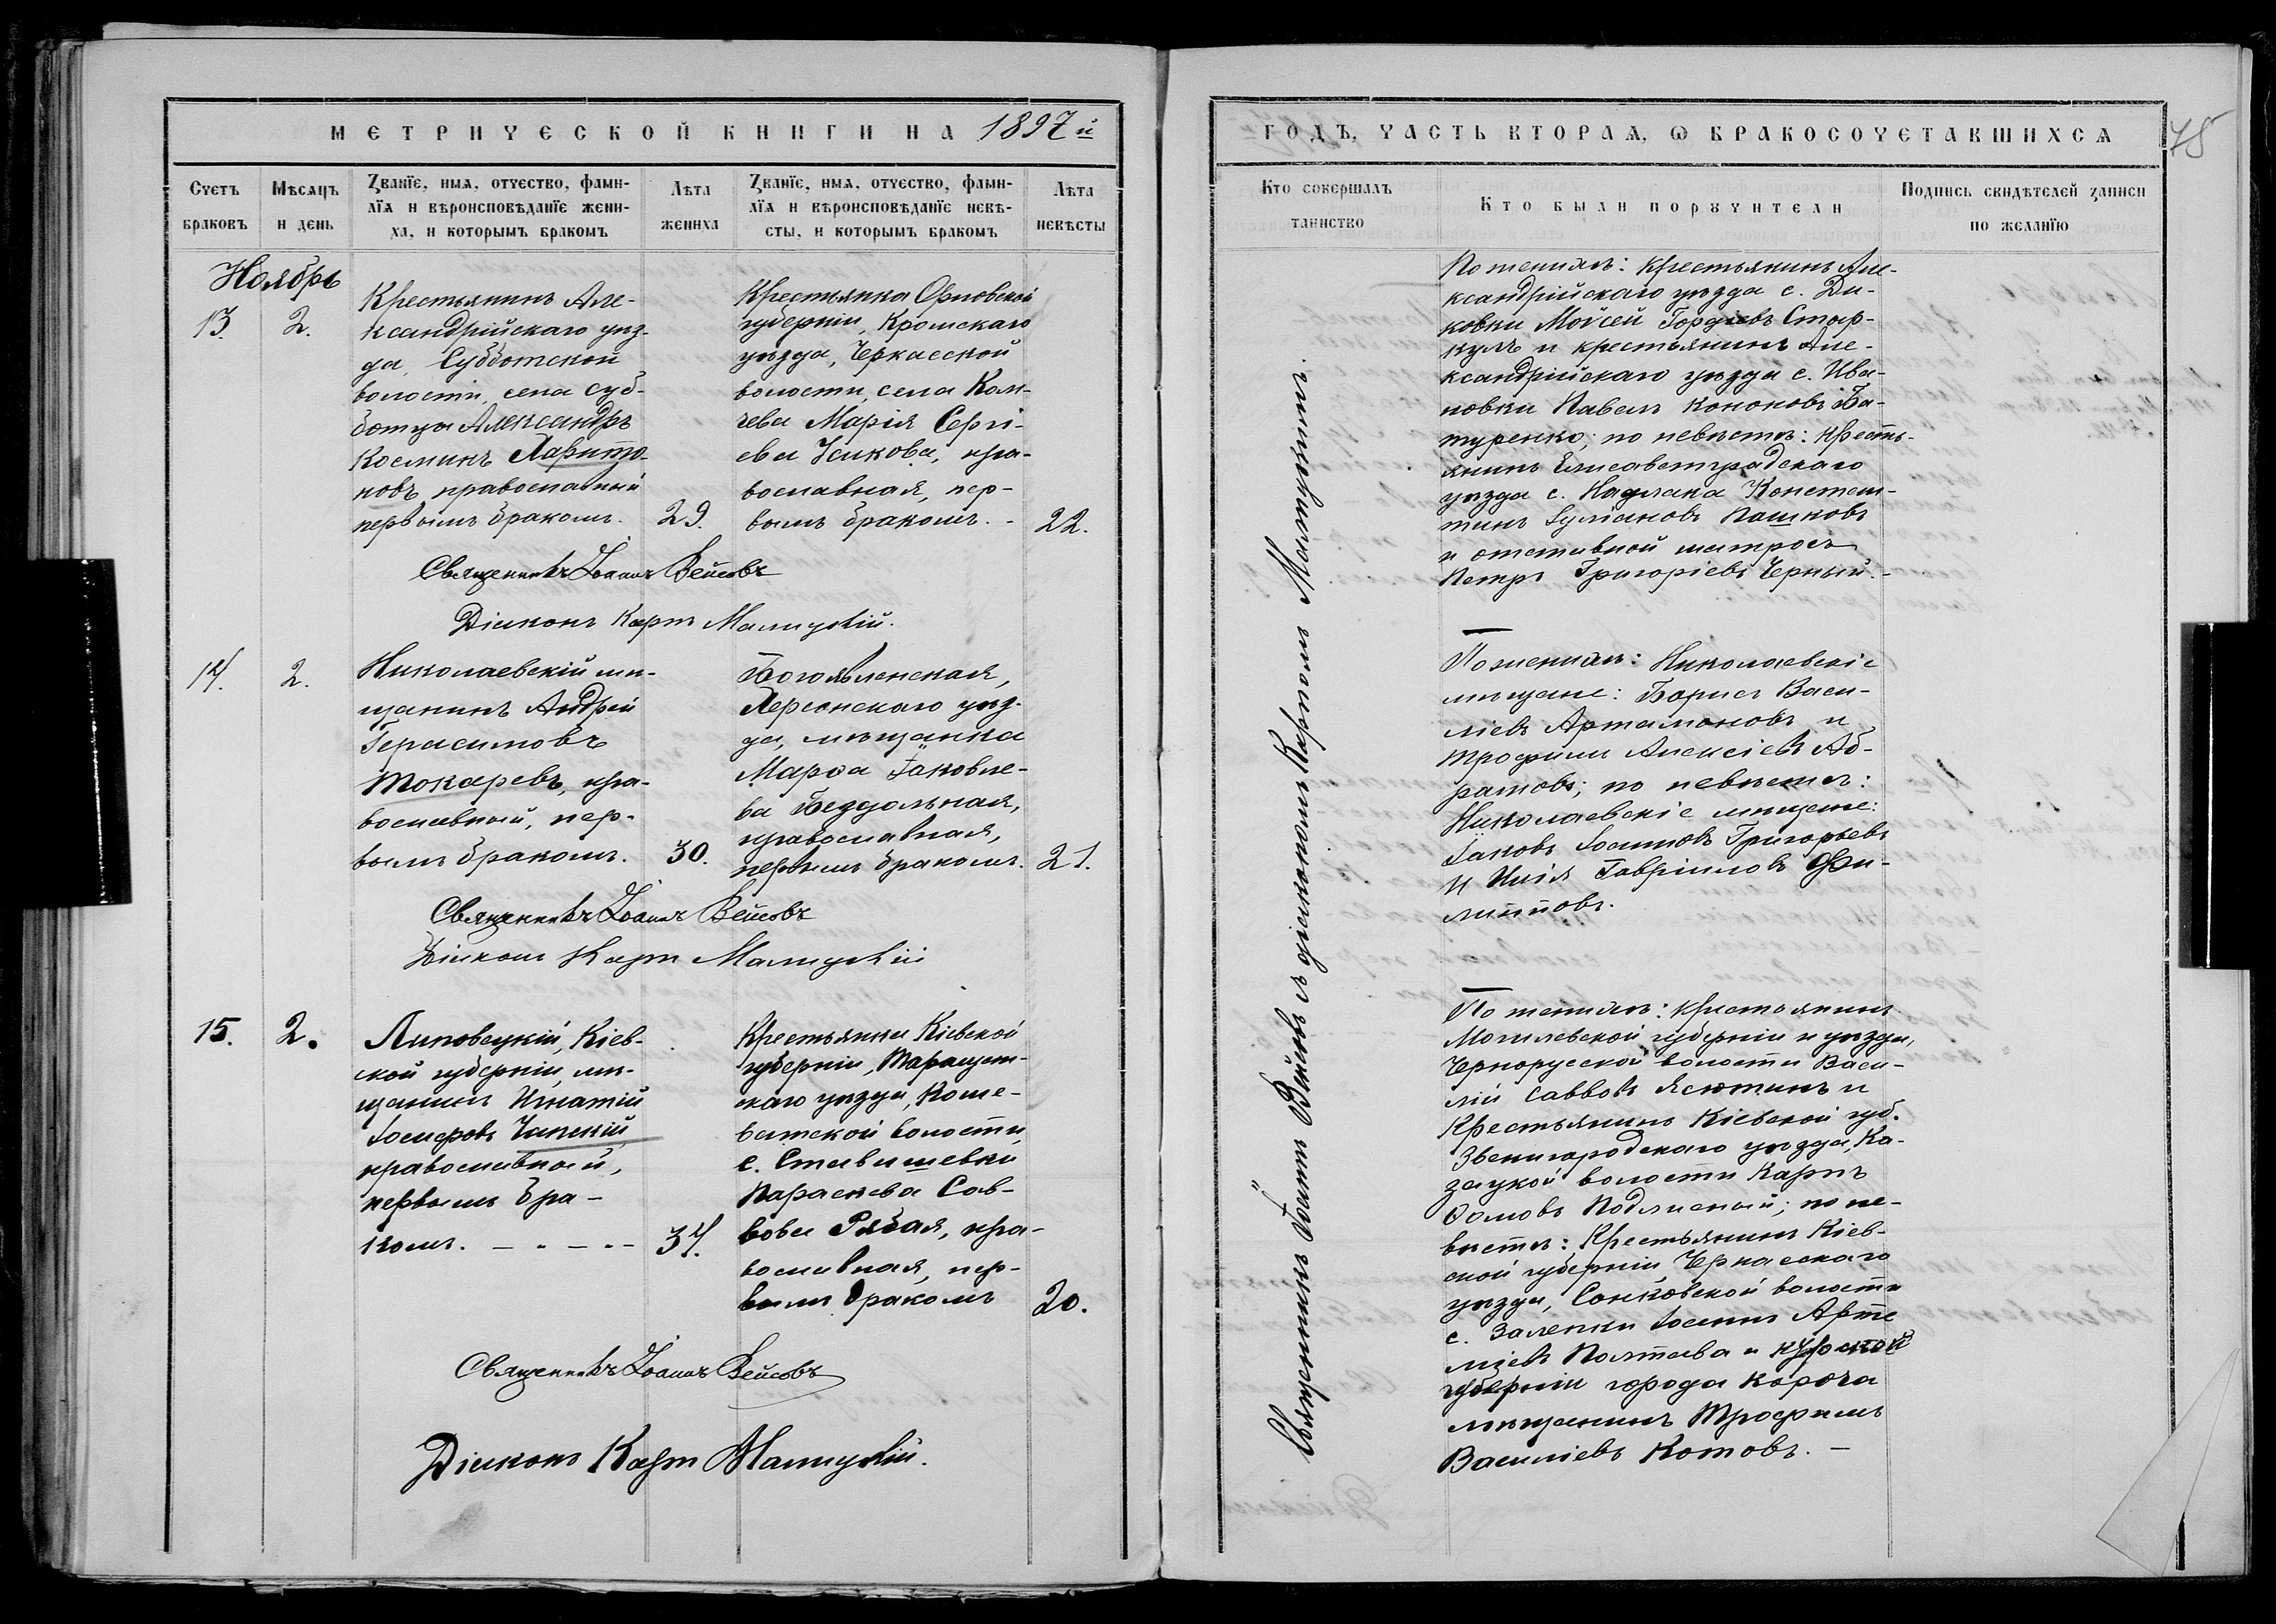 МЕТРИЧЕСКОЙ КНИГИ НА 1897 й
Счетъ браковъ
Мѣсяцъ и день
Званіе, имя, отчество, фамилія и вѣроисповѣданіе жениха, и которымъ бракомъ
Лѣта жениха
Званіе, имя, отчество, фамилія и вѣроисповѣданіе невѣсты, и которымъ бракомъ
Лѣта невѣсты
Ноябрь
13.
2.
Крестьянинъ Але-
ксандрійскаго уѣз-
да, Субботской
волости, села Суб-
ботцы Александръ
Косминъ Харито-
новъ, православный
первымъ бракомъ.
29.
Крестьянка Орловской
губерніи, Кромскаго
уѣзда, Черкасской
волости, села Кол-
чева Марія Сергі-
ева Усикова, пра-
вославная, пер-
вымъ бракомъ. -
22.
Священникъ Іоаннъ Вейсовъ
Діаконъ Карпъ
14.
2.
Николаевскій мѣ-
щанинъ Андрей
Герасимовъ
Токаревъ, пра-
вославный, пер-
вымъ бракомъ.
30.
Богоявленская,
Херсонскаго уѣз-
да, мѣщанка
Марѳа Іаковле-
ва Бездольная,
православная,
первымъ бракомъ.
21.
Священникъ Іоаннъ Вейсовъ
Діаконъ Карпъ
15.
2.
Липовецкій, Кіев-
ской губерніи, мѣ-
щанинъ Игнатій
Іосифовъ Чапскій,
православный,
первымъ бра-
комъ. - - - -
34.
Крестьянка Кіевской
губерніи, Таращан-
скаго уѣзда, Коше-
ватской волости,
с. Стависшевки
Параскева Сав-
вова Рябая, пра-
вославная, пер-
вымъ бракомъ
20.
Священникъ Іоаннъ Вейсовъ
Діаконъ Карпъ
ГОДЪ, ЧАСТЬ ВТОРАЯ, Ѡ БРАКОСОЧЕТАВШИХСЯ
75
Кто совершалъ таинство
Кто были поручители
Подпись свидѣтелей записи по желанію
Священникъ Іоаннъ Вейсовъ съ діакономъ Карпомъ
По женихѣ: крестьянинъ Але-
ксандрійскаго уѣзда с. Ди-
ковки Мойсей Гордіевъ
и крестьянинъ Але-
ксандрійскаго уѣзда с. Ива-
новки Павелъ Кононовъ Ба-
туренко; по невѣстѣ: кресть-
янинъ Елисаветградскаго
уѣзда с. Надлака Констан-
тинъ Іуліановъ Пашковъ
и отставной матросъ
Петръ Григоріевъ Черный. -
По женихѣ: Николаевскіе
мѣщане: Борисъ Васи-
ліевъ Артамоновъ и
Трофимъ Алексіевъ Аб-
рамовъ; по невѣстѣ:
Николаевскіе мѣщане:
Іаковъ Іоанновъ Григорьевъ
и Илія Гавріиловъ Фи-
липповъ.
По женихѣ: крестьянинъ
Могилевской губерніи и уѣзда,
Чернорусской волости Васи-
лій Саввовъ Ясютинъ и
крестьянинъ Кіевской губ.
Звенигородскаго уѣзда, Ка-
зацкой волости Карпъ
Ѳомовъ Подлисный; по не-
вѣстѣ: Крестьянинъ Кіев-
ской губерніи Черкасскаго
уѣзда, волости
с. Залевки Іоаннъ Арте-
міевъ Полтава и Курской
губерніи города Короча
мѣщанинъ Трофимъ
Василіевъ Котовъ. -